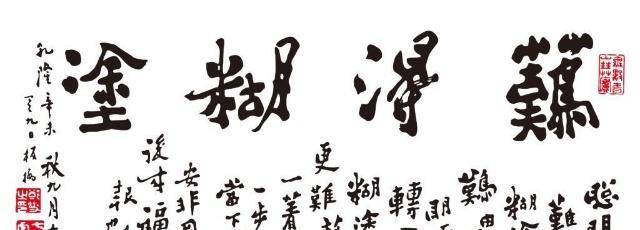 難得糊塗
聰明
難
糊
難由
明
轉
糊塗
更難放
一著
一步
當下
安非
後來福
乾隆辛未
秋九月
九日板橋